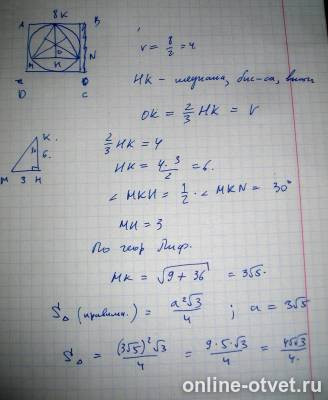 A 8 K B
O
M H N
D C
r = 8/2 = 4
HK - медиана, бис-са, высота
OK = 2/3 HK = r
2/3 HK = 4
HK = 4·3/2 = 6.
K
6.
M 3 H
∠ MKH = 1/2 · ∠ MKN = 30°
MH = 3
По теор Пиф.
MK = √9 + 36 = 3√5.
S△ (правильн.) = a²√3/4 ; a = 3√5
S△ = (3√5)²√3/4 = 9·5·√3/4 = 45√3/4.
online-otvet.ru